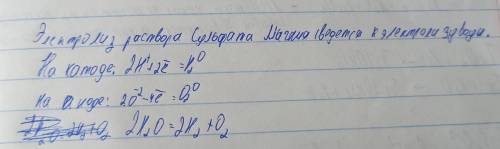 Электролиз раствора Сульфата Магния сводется к электролизу воды.
На катоде: 2H⁺+2ē=H₂⁰
На аноде: 2O⁻²-4ē=O₂⁰
2H₂O=2H₂+O₂